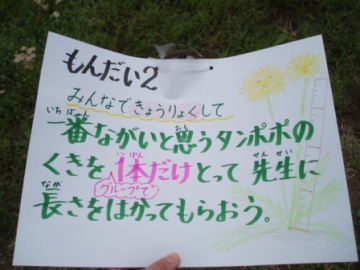 もんだい2
みんなできょうりょくして
一番ながいと思うタンポポの
くきを1本だけとって先生に
グループで
長さをはかってもらおう。